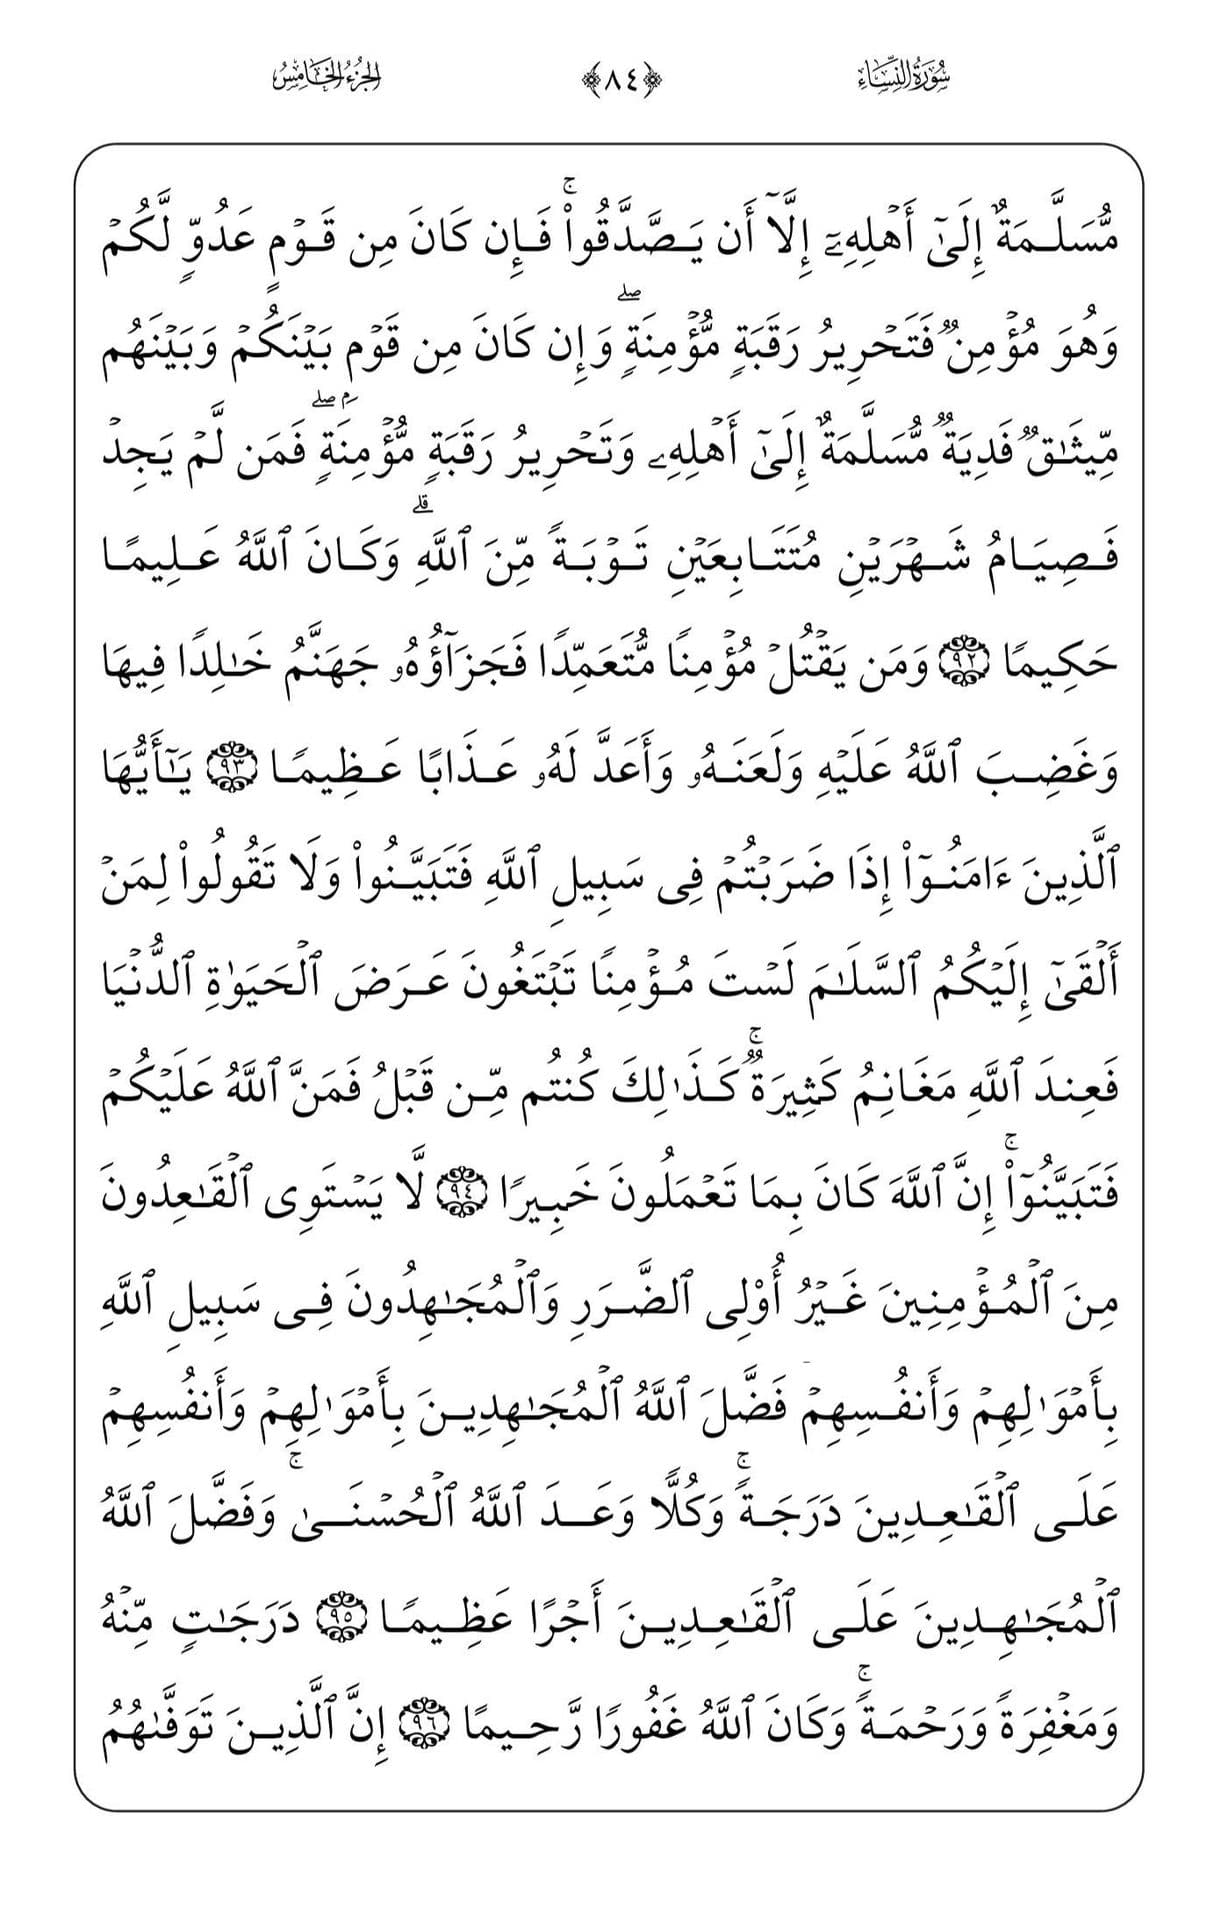 سُورَةُ النِّسَاءِ ﴿٨٤﴾ الجُزْءُ الخَامِسُ
مُّسَلَّمَةٌ إِلَىٰٓ أَهْلِهِۦٓ إِلَّآ أَن يَصَّدَّقُوا۟ ۚ فَإِن كَانَ مِن قَوْمٍ عَدُوٍّ لَّكُمْ
وَهُوَ مُؤْمِنٌ فَتَحْرِيرُ رَقَبَةٍ مُّؤْمِنَةٍ ۖ وَإِن كَانَ مِن قَوْمٍۭ بَيْنَكُمْ وَبَيْنَهُم
مِّيثَٰقٌ فَدِيَةٌ مُّسَلَّمَةٌ إِلَىٰٓ أَهْلِهِۦ وَتَحْرِيرُ رَقَبَةٍ مُّؤْمِنَةٍ ۖ فَمَن لَّمْ يَجِدْ
فَصِيَامُ شَهْرَيْنِ مُتَتَابِعَيْنِ تَوْبَةً مِّنَ ٱللَّهِ ۗ وَكَانَ ٱللَّهُ عَلِيمًا
حَكِيمًا ٩٢ وَمَن يَقْتُلْ مُؤْمِنًا مُّتَعَمِّدًا فَجَزَآؤُهُۥ جَهَنَّمُ خَٰلِدًا فِيهَا
وَغَضِبَ ٱللَّهُ عَلَيْهِ وَلَعَنَهُۥ وَأَعَدَّ لَهُۥ عَذَابًا عَظِيمًا ٩٣ يَٰٓأَيُّهَا
ٱلَّذِينَ ءَامَنُوٓا۟ إِذَا ضَرَبْتُمْ فِى سَبِيلِ ٱللَّهِ فَتَبَيَّنُوا۟ وَلَا تَقُولُوا۟ لِمَنْ
أَلْقَىٰٓ إِلَيْكُمُ ٱلسَّلَٰمَ لَسْتَ مُؤْمِنًا تَبْتَغُونَ عَرَضَ ٱلْحَيَوٰةِ ٱلدُّنْيَا
فَعِندَ ٱللَّهِ مَغَانِمُ كَثِيرَةٌ ۚ كَذَٰلِكَ كُنتُم مِّن قَبْلُ فَمَنَّ ٱللَّهُ عَلَيْكُمْ
فَتَبَيَّنُوٓا۟ ۚ إِنَّ ٱللَّهَ كَانَ بِمَا تَعْمَلُونَ خَبِيرًا ٩٤ لَّا يَسْتَوِى ٱلْقَٰعِدُونَ
مِنَ ٱلْمُؤْمِنِينَ غَيْرُ أُو۟لِى ٱلضَّرَرِ وَٱلْمُجَٰهِدُونَ فِى سَبِيلِ ٱللَّهِ
بِأَمْوَٰلِهِمْ وَأَنفُسِهِمْ ۚ فَضَّلَ ٱللَّهُ ٱلْمُجَٰهِدِينَ بِأَمْوَٰلِهِمْ وَأَنفُسِهِمْ
عَلَى ٱلْقَٰعِدِينَ دَرَجَةً ۚ وَكُلًّا وَعَدَ ٱللَّهُ ٱلْحُسْنَىٰ ۚ وَفَضَّلَ ٱللَّهُ
ٱلْمُجَٰهِدِينَ عَلَى ٱلْقَٰعِدِينَ أَجْرًا عَظِيمًا ٩٥ دَرَجَٰتٍ مِّنْهُ
وَمَغْفِرَةً وَرَحْمَةً ۚ وَكَانَ ٱللَّهُ غَفُورًا رَّحِيمًا ٩٦ إِنَّ ٱلَّذِينَ تَوَفَّىٰهُمُ